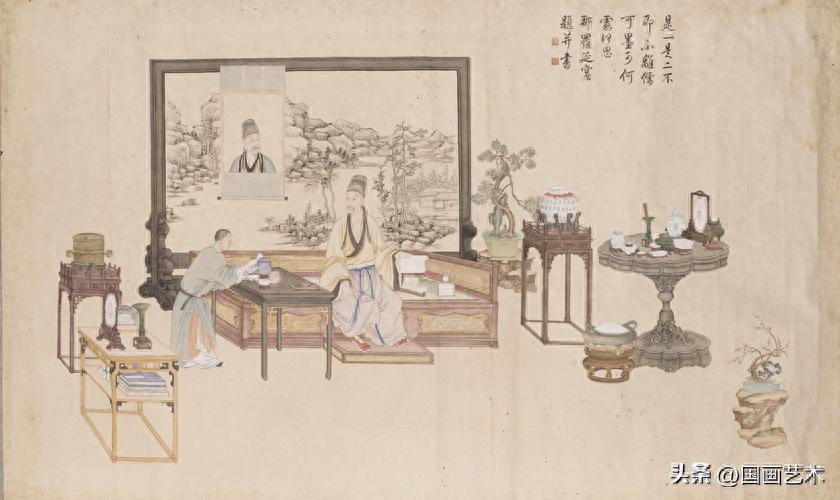 是一是二不
即不離儒
可墨可何
慮何思
那羅延窟
題并書
头条 @国画艺术